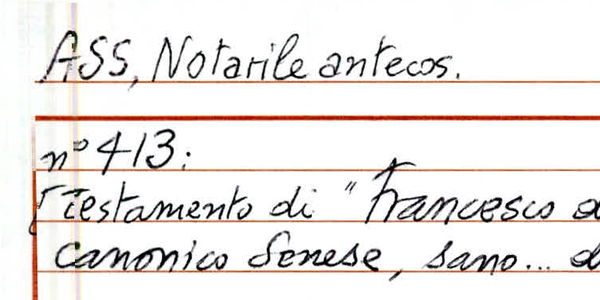 ASS, Notarile antecos.
n° 413:
[Testamento di "Francesco
canonico Senese, sano...